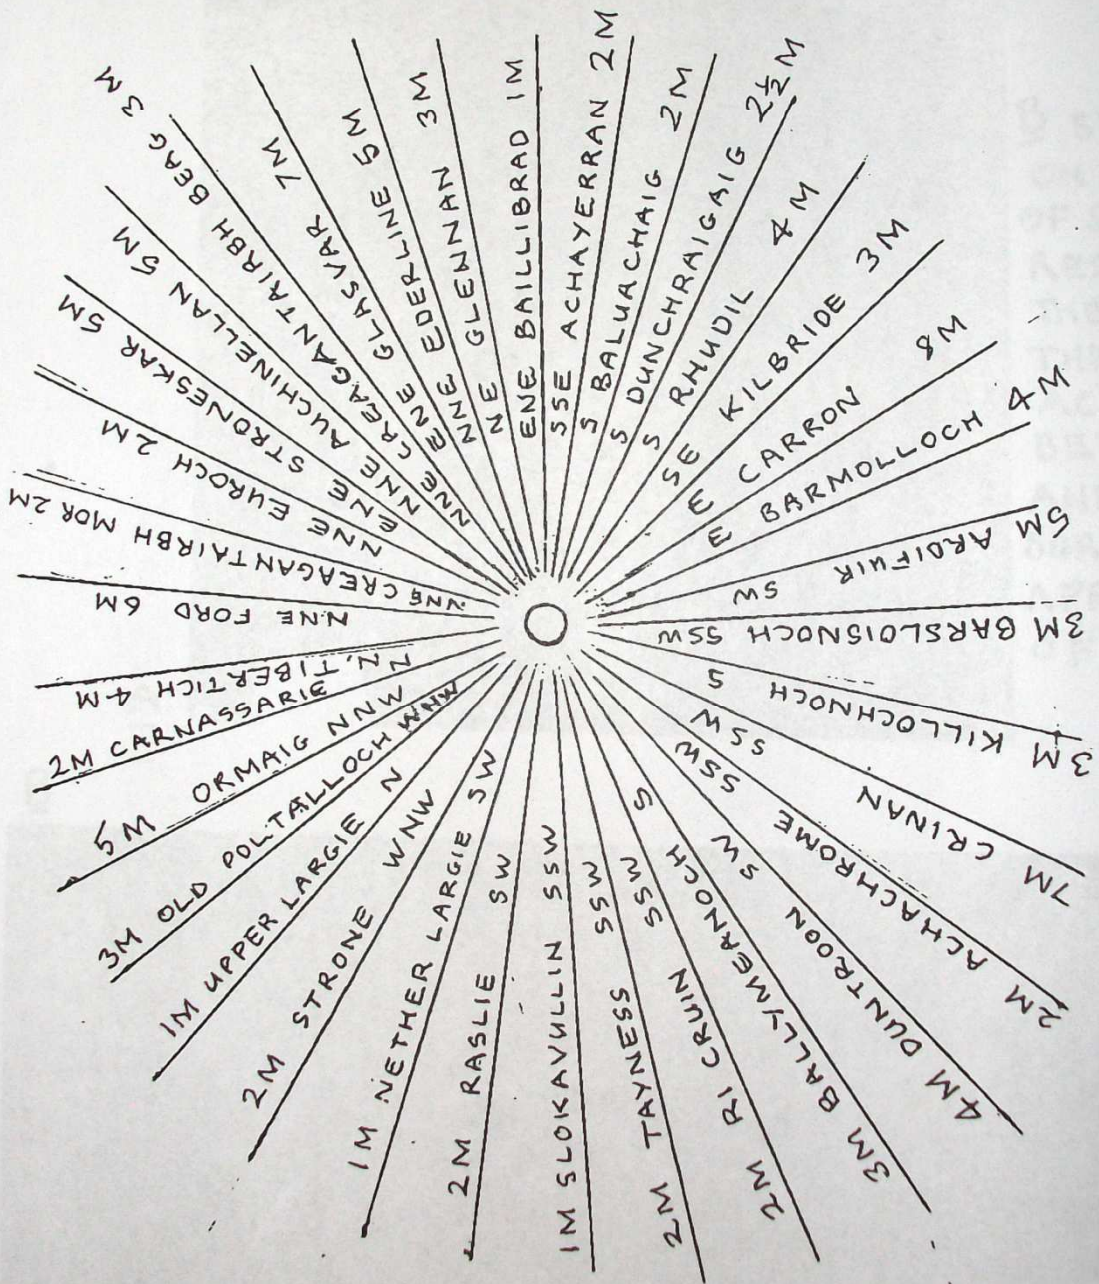 ENE BAILLIBRAD 1M
SSE ACHAYERRAN 2M
S BALUACHAIG 2M
S DUNCHRAIGAIG 2½M
S RHUDIL 4M
SE KILBRIDE 3M
E CARRON 8M
E BARMOLLOCH 4M
5M ARDIFUIR SW
3M BARSLOISNOCH SSW
3M KILLOCHNOCH S
7M CRINAN SSW
2M ACHACHROME SSW
4M DUNTROON SW
3M BALLYMEANOCH S
2M RI CRUIN SSW
2M TAYNESS SSW
1M SLOKAVULLIN SSW
2M RASLIE SW
1M NETHER LARGIE SW
2M STRONE WNW
1M UPPER LARGIE N
3M OLD POLTALLOCH WNW
5M ORMAIG NNW
2M CARNASSARIE N
N. TIBERTICH 4M
NNE FORD 6M
NNE CREAGANTAIRBH MOR 2M
NNE EUROCH 2M
ENE STRONESKAR 5M
NNE AUCHINELLAN 5M
NNE CREAGANTAIRBH BEAG 3M
ENE GLASVAR 7M
NNE EDERLINE 5M
NE GLENNAN 3M